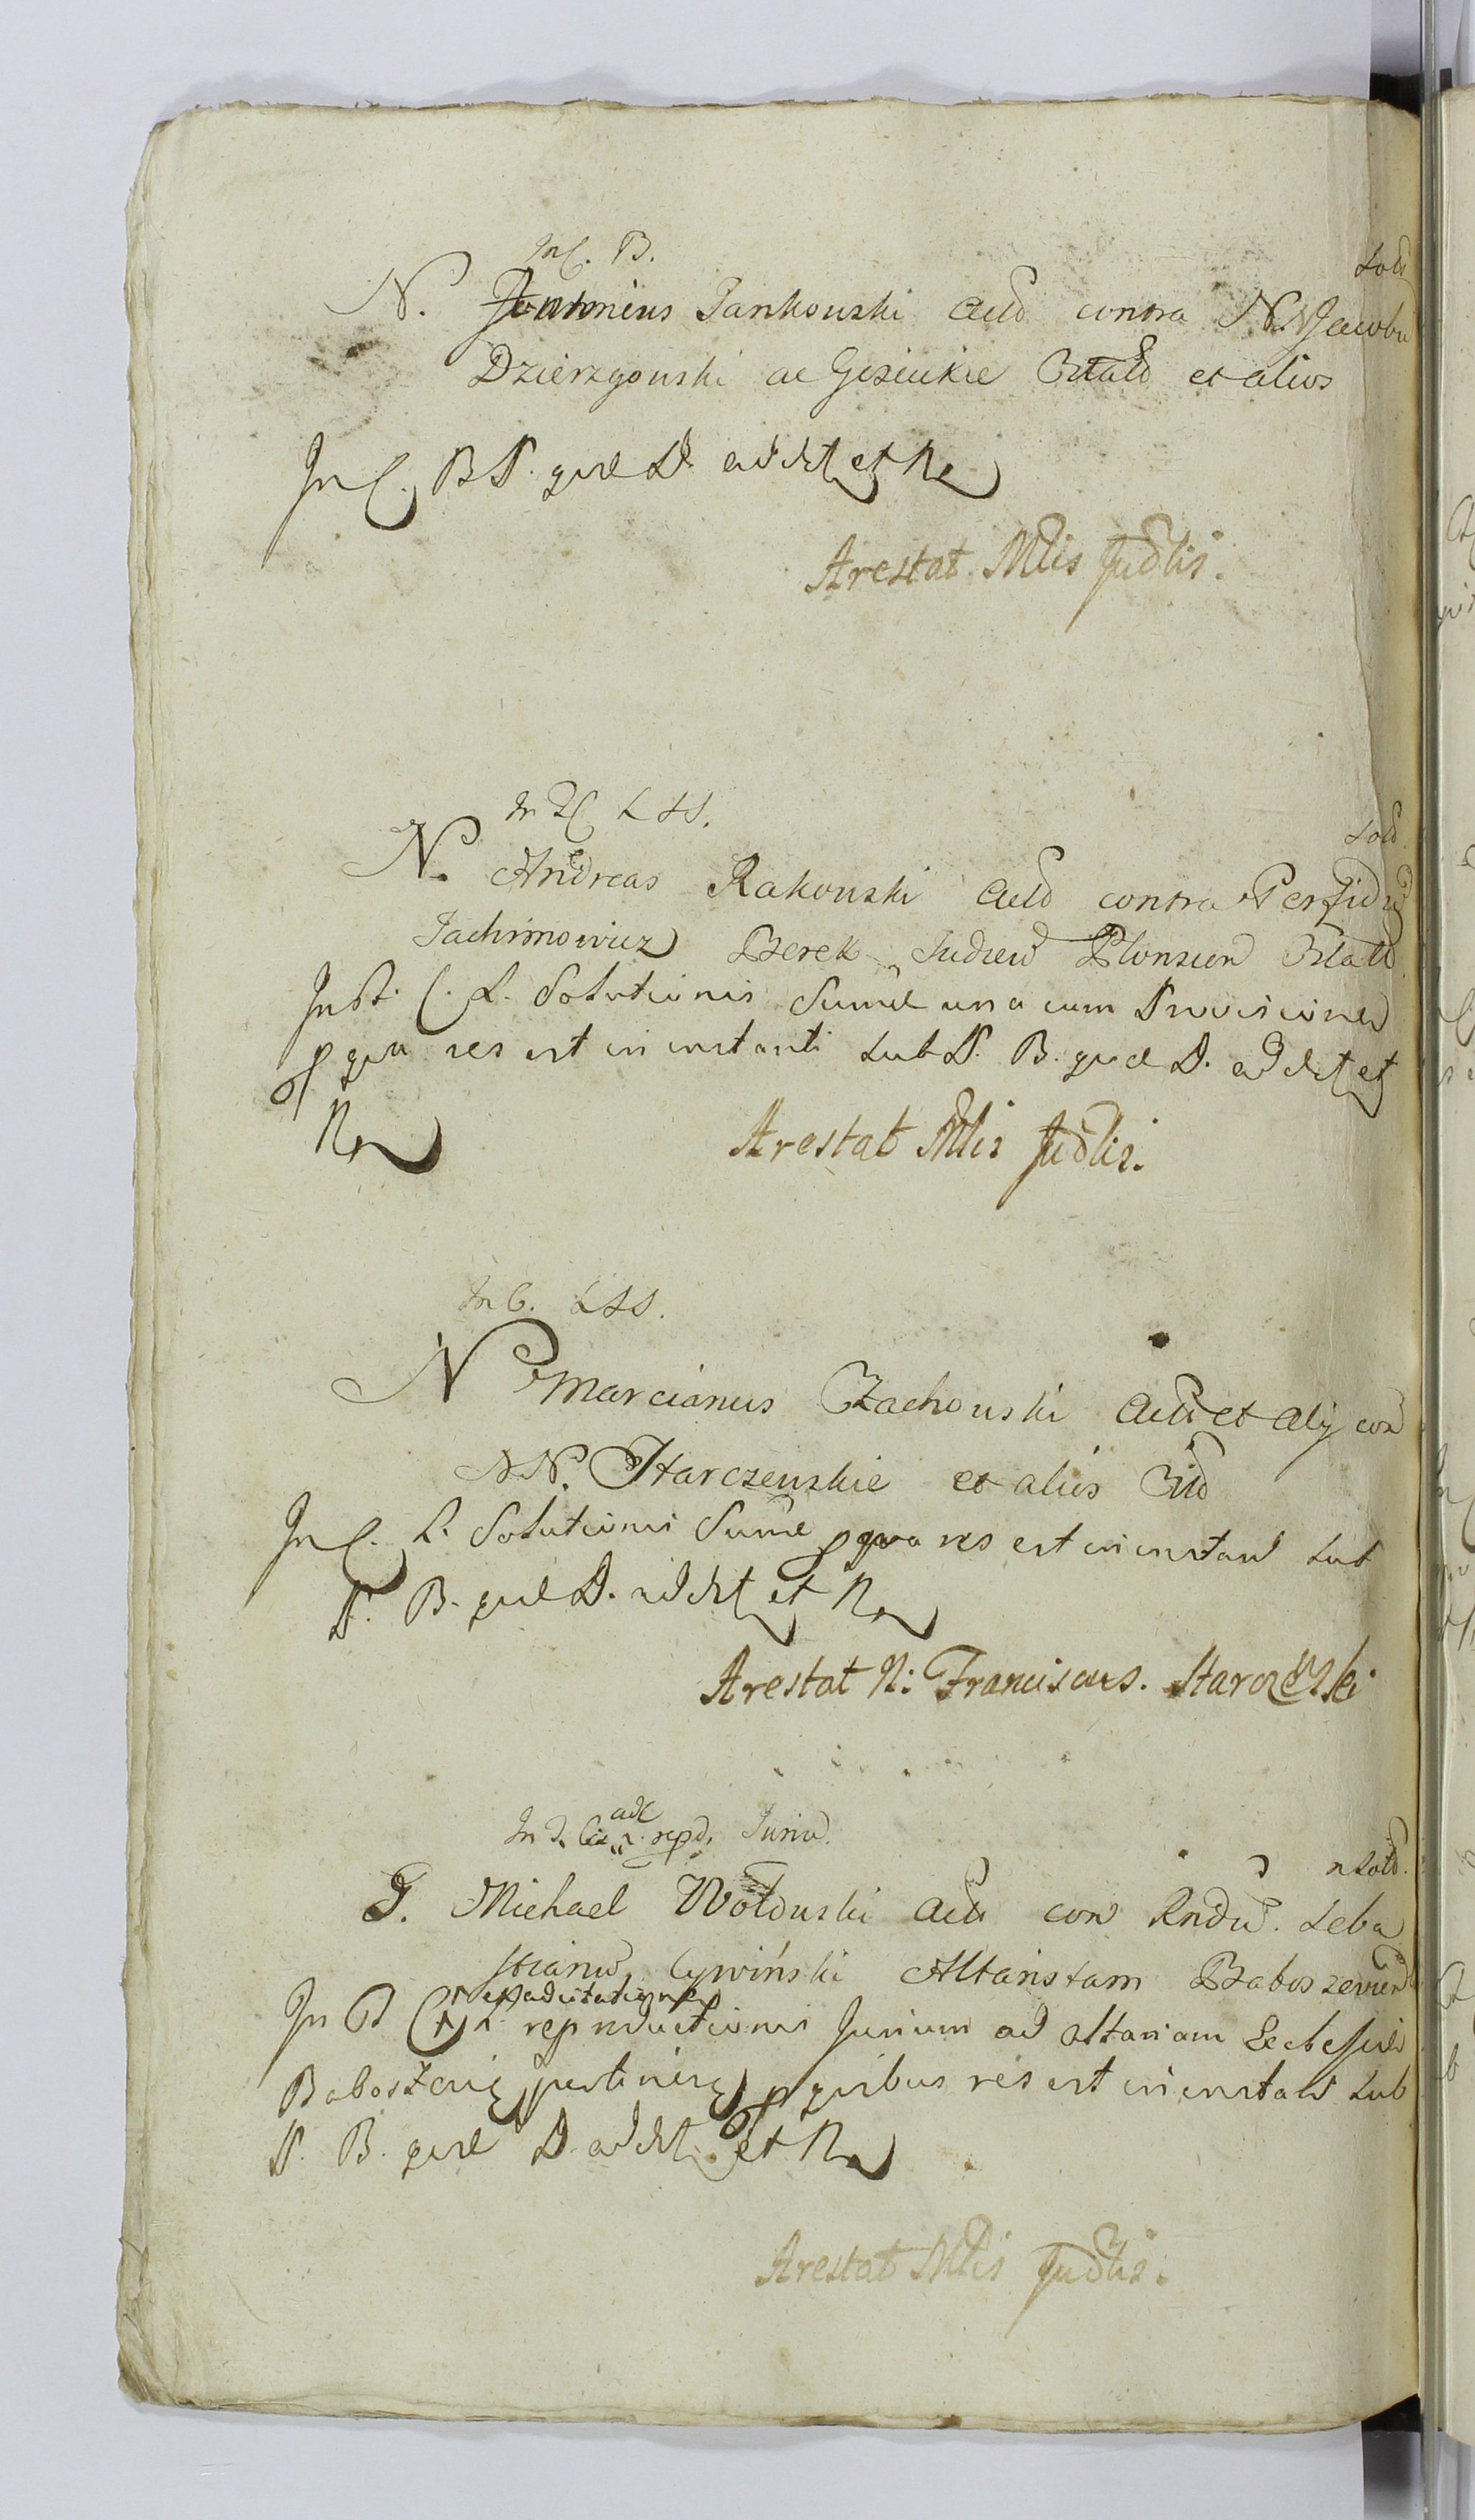 In C. B.
Sold
N. Antonius Jankowski Actd contra NN Jacobu
Dzierzgowski ac Gisiukie Cittatd et alios
In C. B P. quæ D. addt et Ne
Arestat Mlis Judlis.
In 2 C L SS.
Sold
N. Andreas Rakowski Actd contra Perfidu
Jachimowicz Berek Judeu Plonscen Cittatd
In P. C. L. Solutionis Summæ una cum Provisione
p qua res est in instanti sub P. B. quæ D. addt et
Ne
Arestat Mlis Judlis.
In C. L SS.
N Marcianus Czachowski Actd et alij con
NN. Starczewskie et alios Citd
In C. L. Solutionis Summæ p qua res est in instan sub
P. B. quæ D. addt et Ne
Arestat N: Franciscus. Starczewski
In P. C. ad repd. Juriu
nSold.
G. Michael Wołduski Actd con Rndu. Seba
stianu Cywiński Altaristam Baboszevien
expaditatione
In P C L reproductionis Jurium ad altariam Ecclesiæ
Baboszeviæ pertinens p quibus res est in instan sub
P. B. quæ D addt et Ne
Arestat Mlis Judlis.